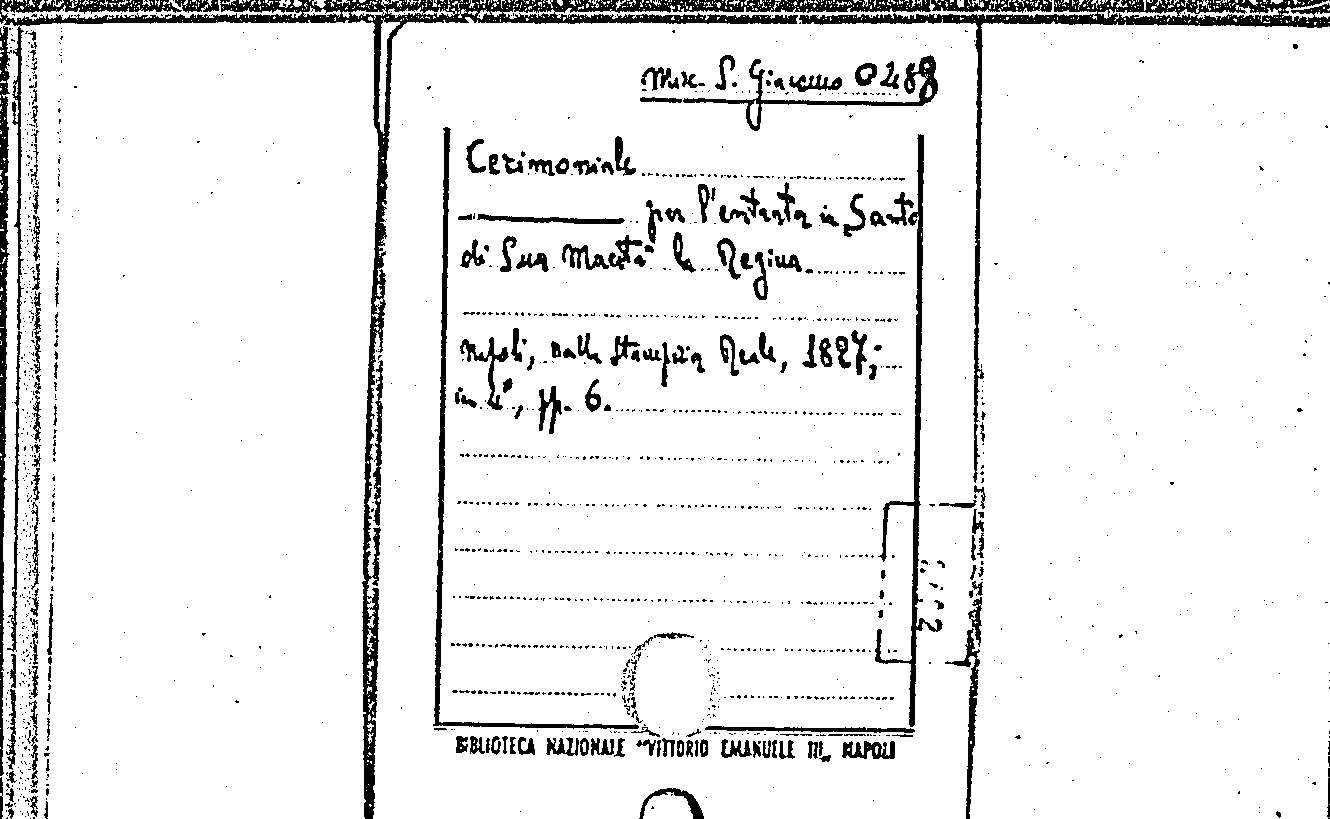 Misc. S. Giacomo 0288
Cerimoniale
per l'entrata in Santo
di Sua Maestà la Regina.
Napoli, nalla Stamperia Reale, 1827;
in 4°, pp. 6.
BIBLIOTECA NAZIONALE "VITTORIO EMANUELE III„ NAPOLI